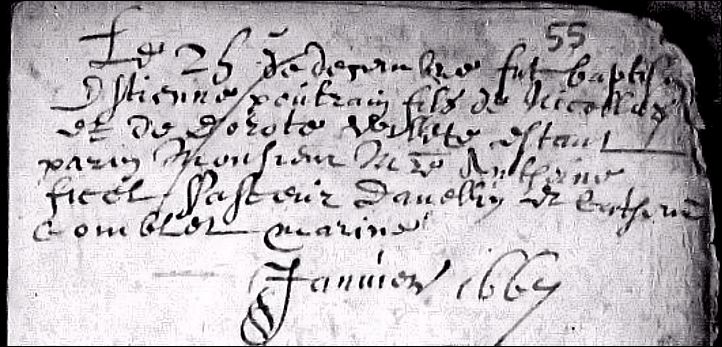 55
Le 25 de decembre fut baptisé
Estienne poutrain fils de Nicollas
et de dorote estant
parin Monsieur Mre Anthoine
ficel Pasteur davelin et Catherine
Comblet marine
Janvier 1667